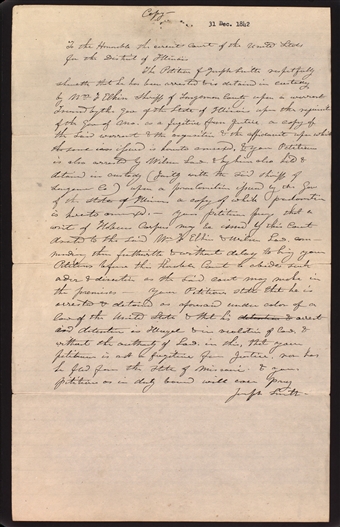 Copy
31 Dec. 1842
To the Honorable the circuit Court of the United States
for the District of Illinois
The Petition of Joseph Smith respectfully
sheweth that he has been arrested & is detained in custody
by Wm F Elkin Sheriff of Sangamon County upon a warrant
issued by the Gov of the State of Illinois upon the requisition
of the Gov of Mo. as a fugitive from Justice a copy of
the said warrant & the requisition & the affidavit upon which
the same was issued is hereto annexed, & your Petitioner
is also arrested by Wilson Law & by him also held &
detained in custody (Jointly with the said Sheriff of
Sangamon Co) upon a proclamation issued by the Gov
of the State of Illinois a copy of which proclamation
is hereto annexed. — your petitioner prays that a
writ of Habeas Corpus may be issued by this Court
directed to the said Wm F Elkin & Wilson Law, com
manding them forthwith & without delay to bring your
Petitioner before the Honorable Court to abide such
order & direction as the said court may make in
the premises — Your Petitioner states that he is
arrested & detained as aforesaid under color of a
Law of the United States & that his detention & arrest
and detention is illegal & in violation of Law, &
without the authority of Law. in this, that your
petitioner is not a fugitive from Justice, nor has
he fled from the State of Missouri. & your
petitioner as in duty bound will ever pray
Joseph Smith